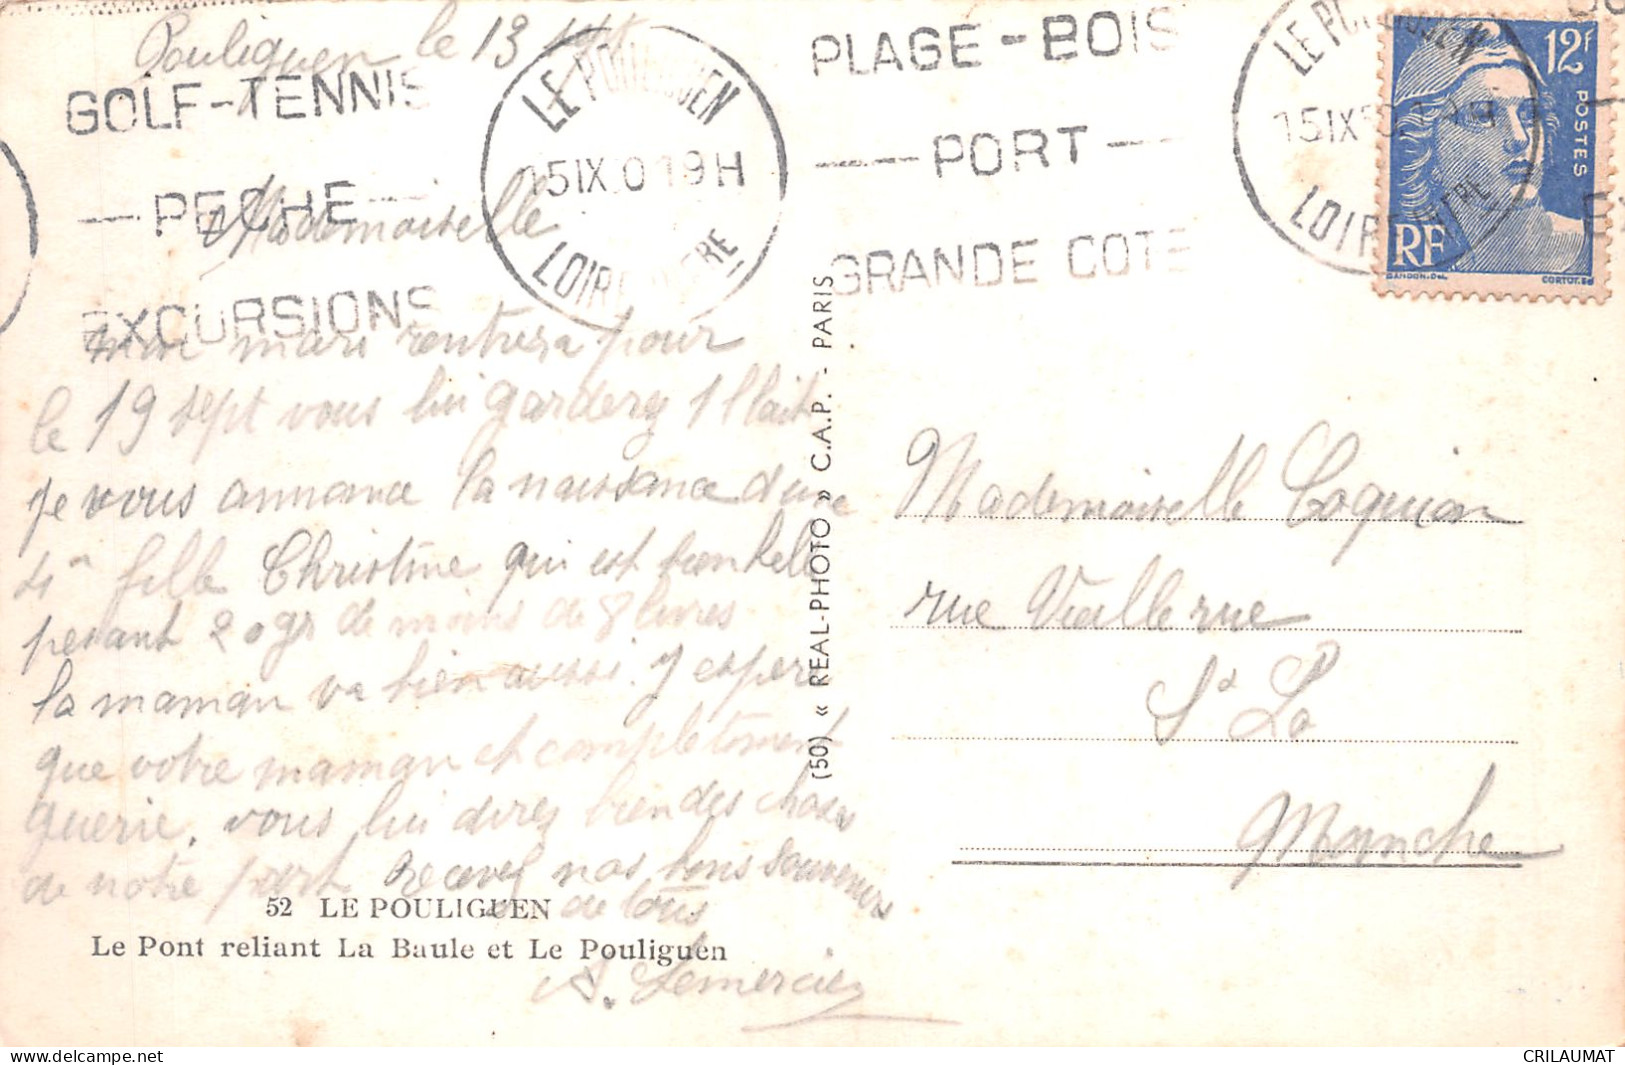 Pouliguen le 13
GOLF-TENNIS
PECHE
EXCURSIONS
LE POULIGUEN
15 IX 50 19H
LOIRE
PLAGE-BOIS
PORT
GRANDE COTE
LE POULIGUEN
15 IX
LOIRE
12F
POSTES
RF
GANDON.DEL
CORTOT.SC
Mademoiselle
mon mari rentrera pour
le 19 sept vous lui garderez 1 l lait
je vous annonce la naissance d'une
fille Christine qui est
pesant 20 gr de moins de 8 livres
la maman va bien aussi. J espere
que votre maman et completement
guerie. vous lui direz bien des choses
de notre part Recevez nos bons souvenirs
de tous
A. Lemercier
52 LE POULIGUEN
Le Pont reliant La Baule et Le Pouliguen
(50) « REAL-PHOTO » C.A.P. - PARIS
Mademoiselle Coquion
rue Valleruе
St Lo
Manche
CRILAUMAT